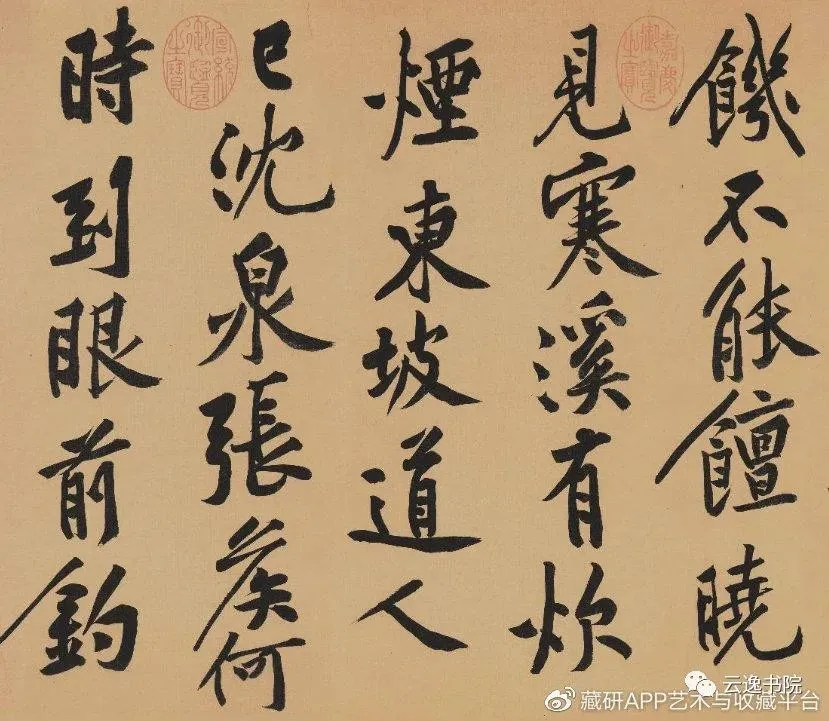 饑不能饘曉
見寒溪有炊
煙東坡道人
已沈泉張侯何
時到眼前釣
嘉慶御覽之寶
宣統御覽之寶
云逸书院
藏研APP艺术与收藏平台